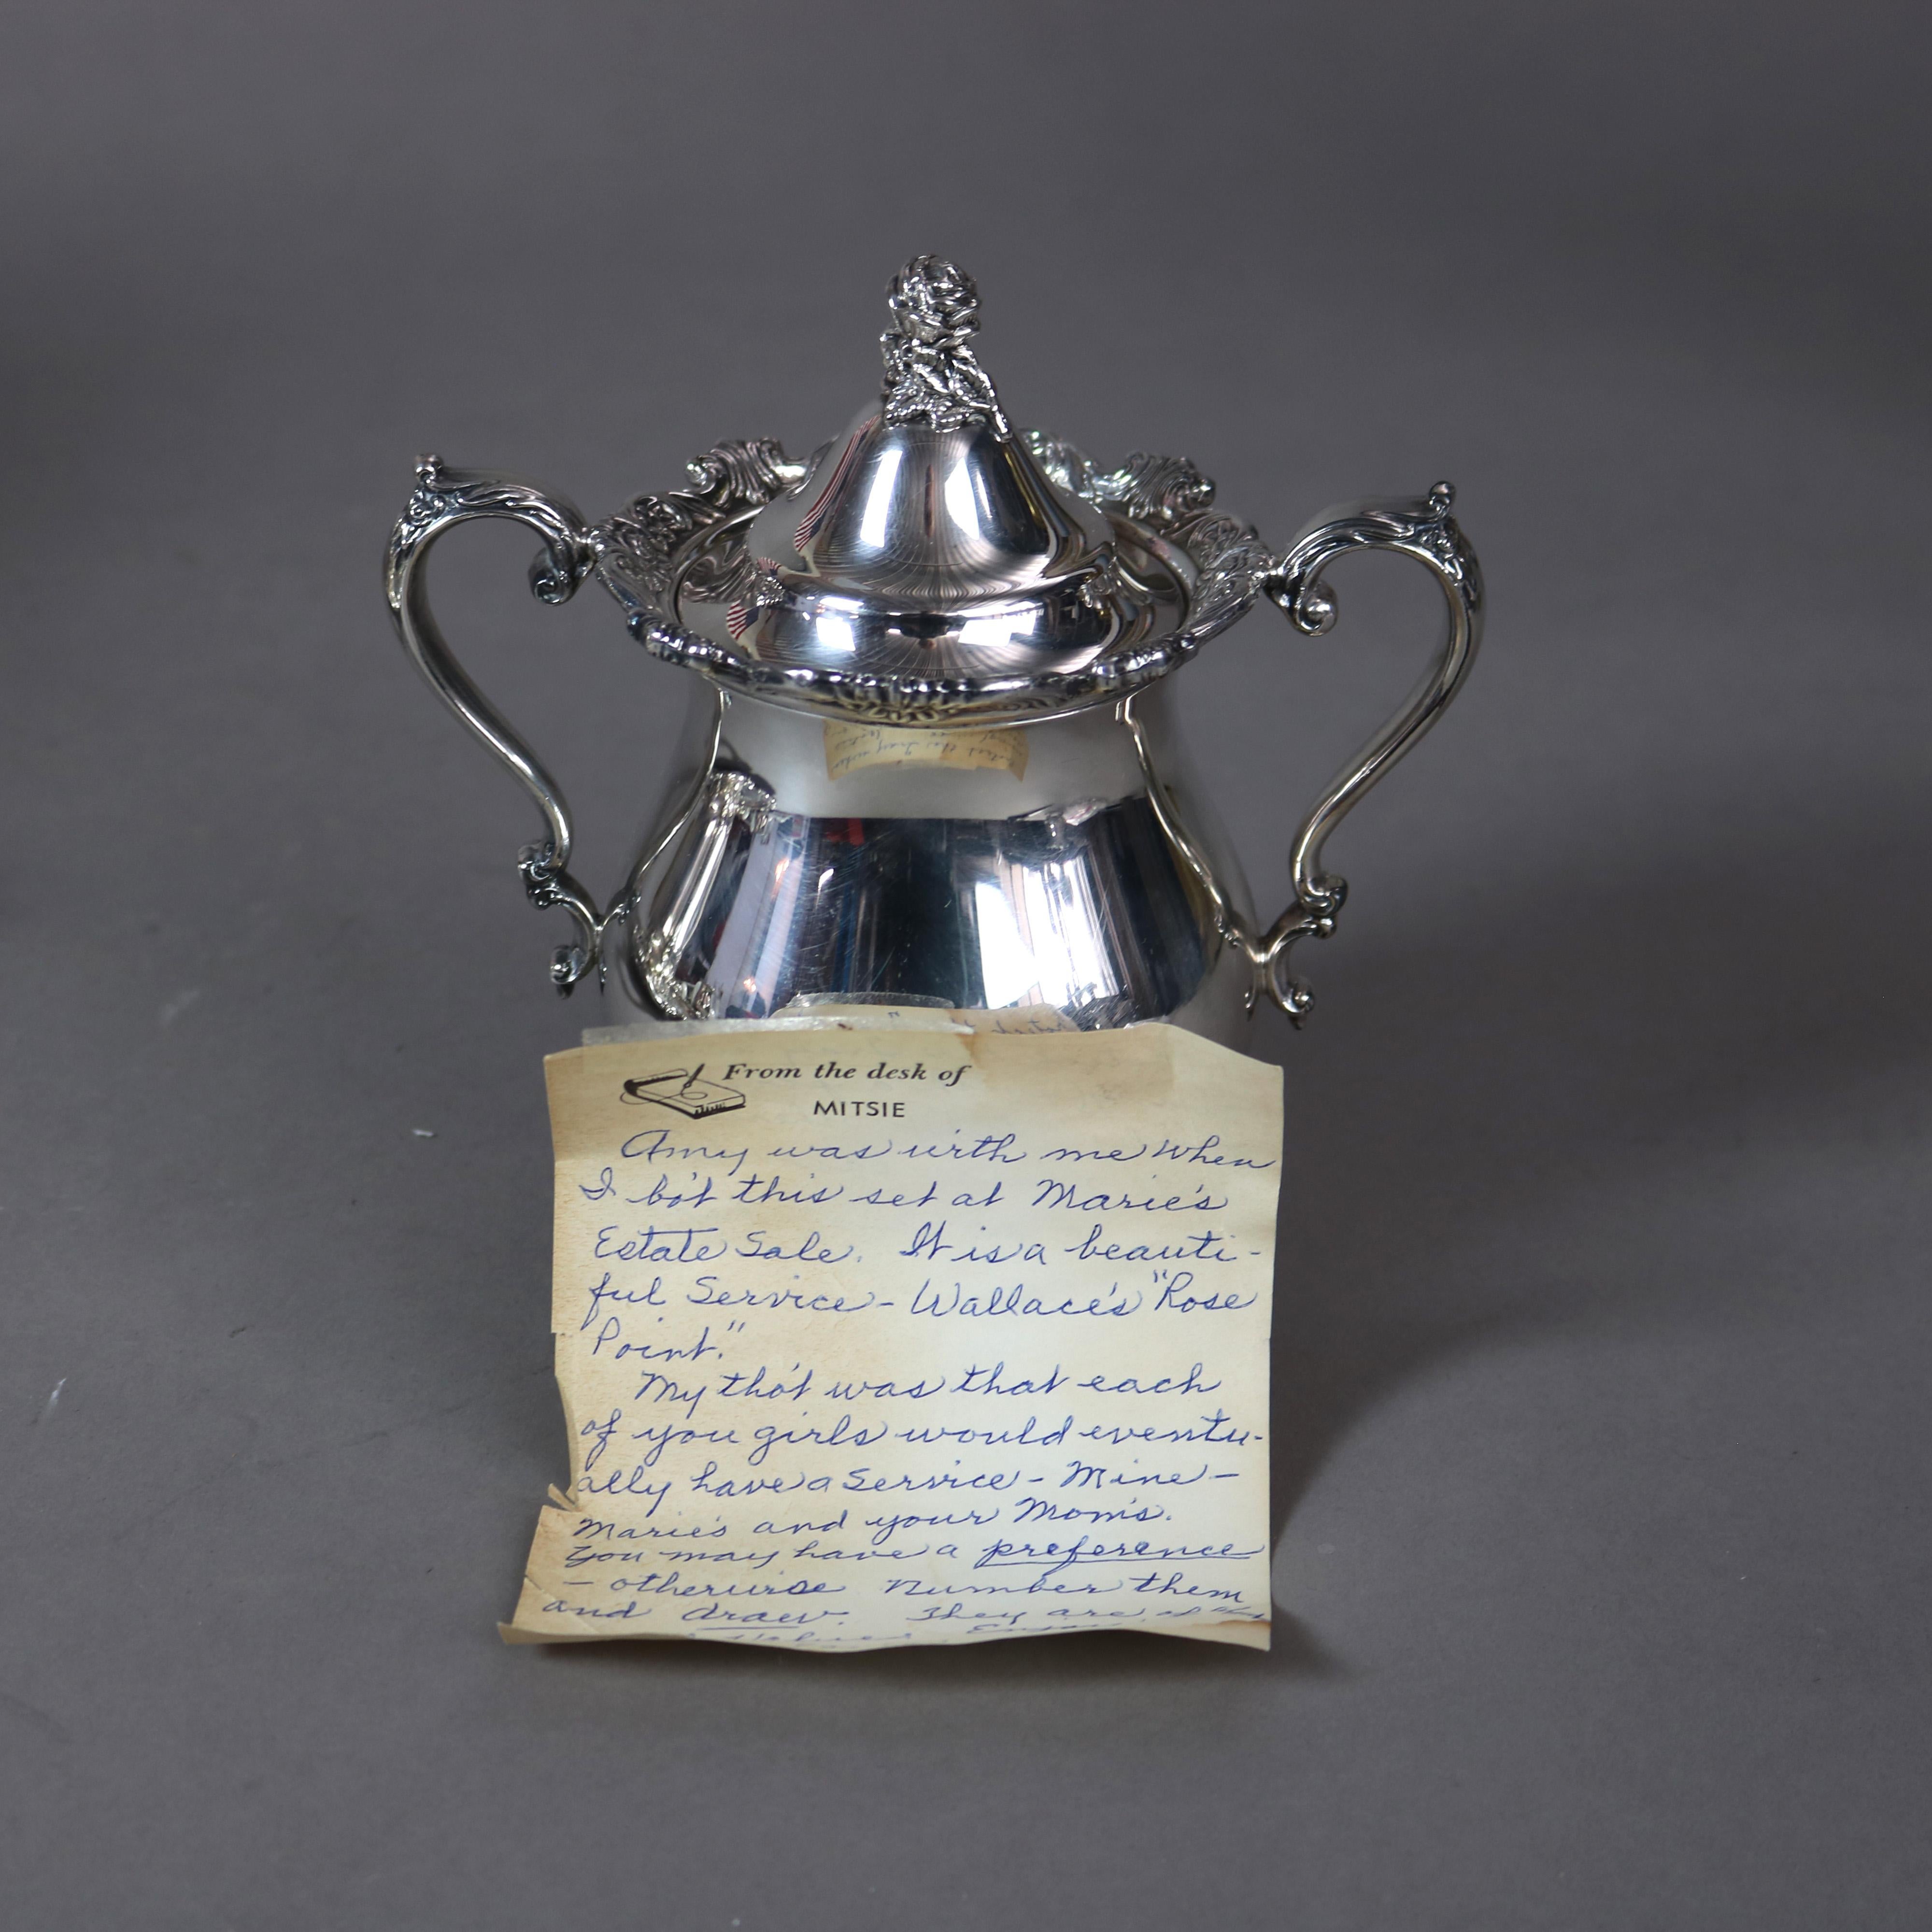 From the desk of
MITSIE
Amy was with me when
I bo't this set at Marie's
Estate Sale. It is a beauti-
ful Service - Wallace's "Rose
Point."
My tho't was that each
of you girls would eventu-
ally have a Service - Mine -
Marie's and your Mom's.
You may have a preference
- otherwise number them
and draw. They are of